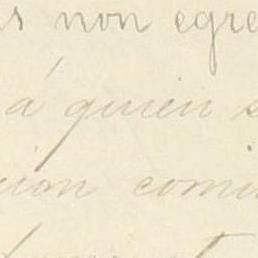 non egre
á quien s
ion comi